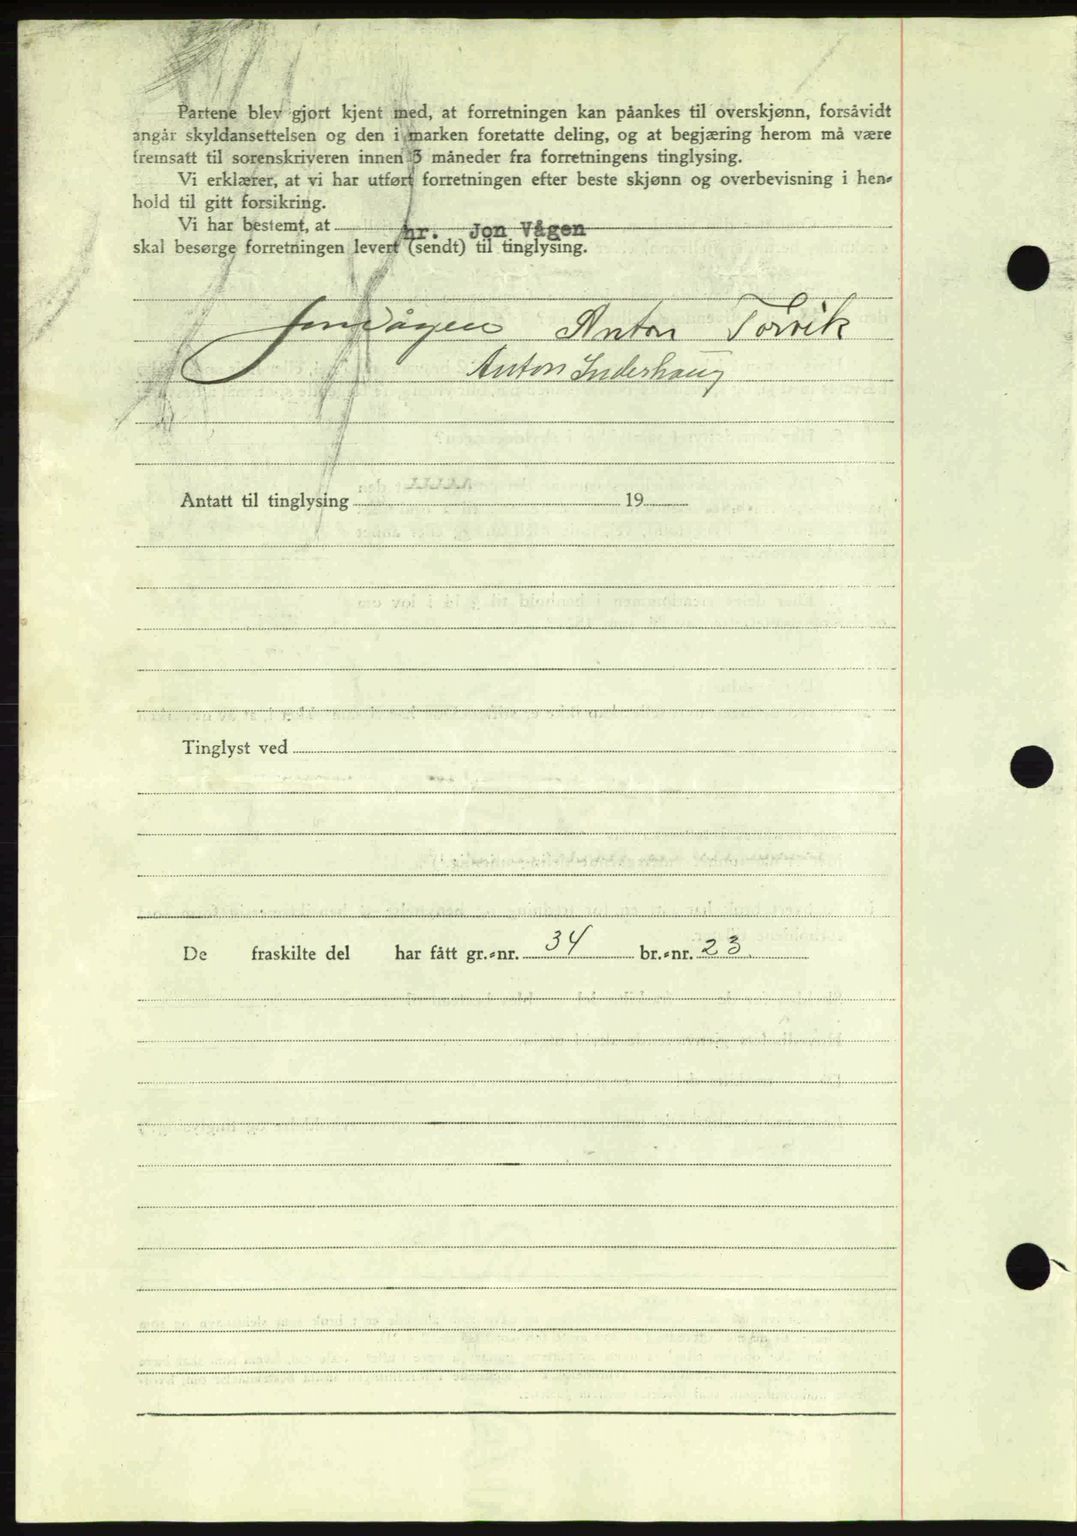 Partene blev gjort kjent med, at forretningen kan påankes til overskjønn, forsåvidt
angår skyldansettelsen og den i marken foretatte deling, og at begjæring herom må være
fremsatt til sorenskriveren innen 3 måneder fra forretningens tinglysing.
Vi erklærer, at vi har utført forretningen efter beste skjønn og overbevisning i hen-
hold til gitt forsikring.
Vi har bestemt, at hr. Jon Vågen
skal besørge forretningen levert (sendt) til tinglysing.
Jon Vågen Anton Torvik
Anton Inderhaug
Antatt til tinglysing 19
Tinglyst ved
De fraskilte del har fått gr.-nr. 34 br.-nr. 23.